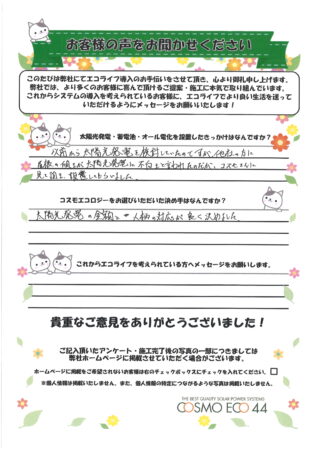 お客様の声をお聞かせください
このたびは弊社にてエコライフ導入のお手伝いをさせて頂き、心より御礼申し上げます。
弊社では、より多くのお客様に喜んで頂けるご提案・施工に本気で取り組んでいます。
これからシステムの導入を考えられているお客様に、エコライフでより良い生活を送って
いただけるようにメッセージをお願いいたします！
太陽光発電・蓄電池・オール電化を設置したきっかけはなんですか？
以前から太陽光発電を検討していたのですが、他社の方に
屋根の傾きが太陽光発電に不向きと言われたのだが、コスモさんに
見て頂き、設置してもらいました。
コスモエコロジーをお選びいただいた決め手はなんですか？
太陽光発電の金額と 人柄の対応が良く決めました。
これからエコライフを考えられている方へメッセージをお願いします。
貴重なご意見をありがとうございました！
ご記入頂いたアンケート・施工完了後の写真の一部につきましては
弊社ホームページに掲載させていただく場合がございます。
ホームページに掲載をご希望されないお客様は右のチェックボックスにチェックを入れてください。
※個人情報は掲載いたしません。また、個人情報の特定につながるような写真は掲載いたしません。
THE BEST QUALITY SOLAR POWER SYSTEMS
COSMO ECO 44